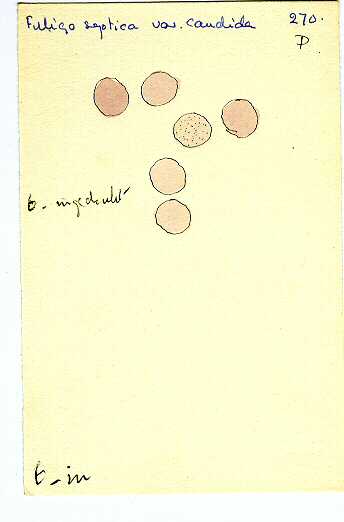 Fuligo septica var. candida 270.
P
t - ingedeukt
t - in